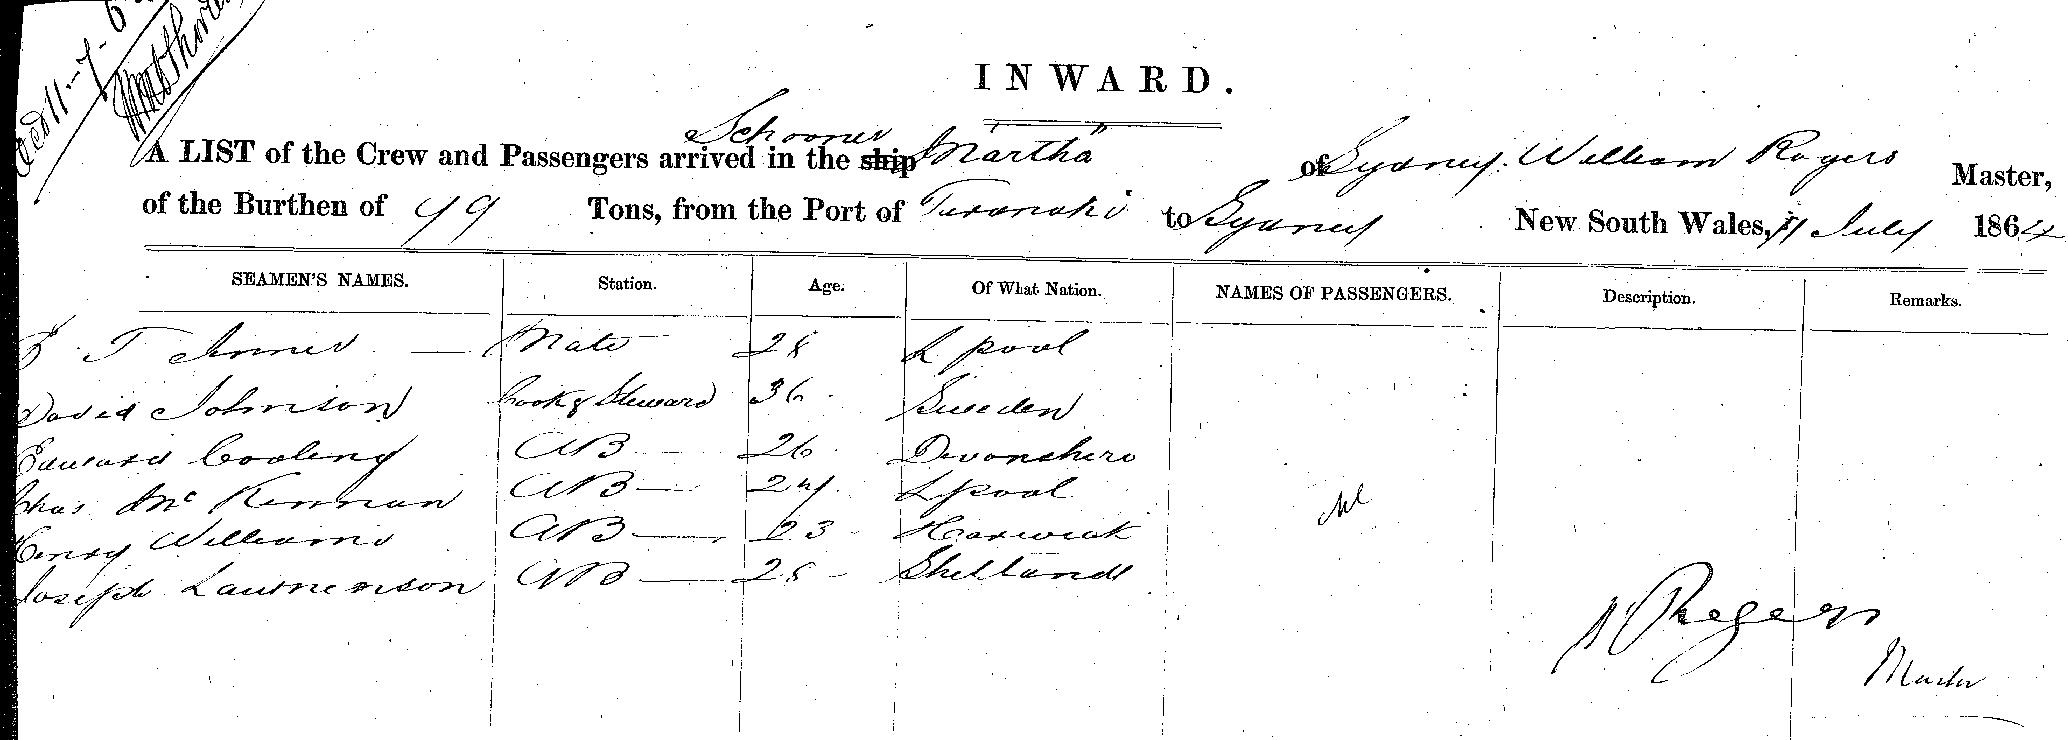 INWARD.
A LIST of the Crew and Passengers arrived in the ship Schooner "Martha" of Sydney. William Rogers Master,
of the Burthen of 99 Tons, from the Port of Taranaki to Sydney New South Wales, 11 July 1864
SEAMEN'S NAMES. Station. Age. Of What Nation. NAMES OF PASSENGERS. Description. Remarks.
T Mate 28 L pool
David Johnson Cook & Steward 36 Sweden
Edward Cooling AB 26 Devonshire
Chas Mc Kennan AB 24 Lpool
Henry Williams AB 23 Harwich
Joseph Laurnenson AB 28 Shetland
W Rogers
Master